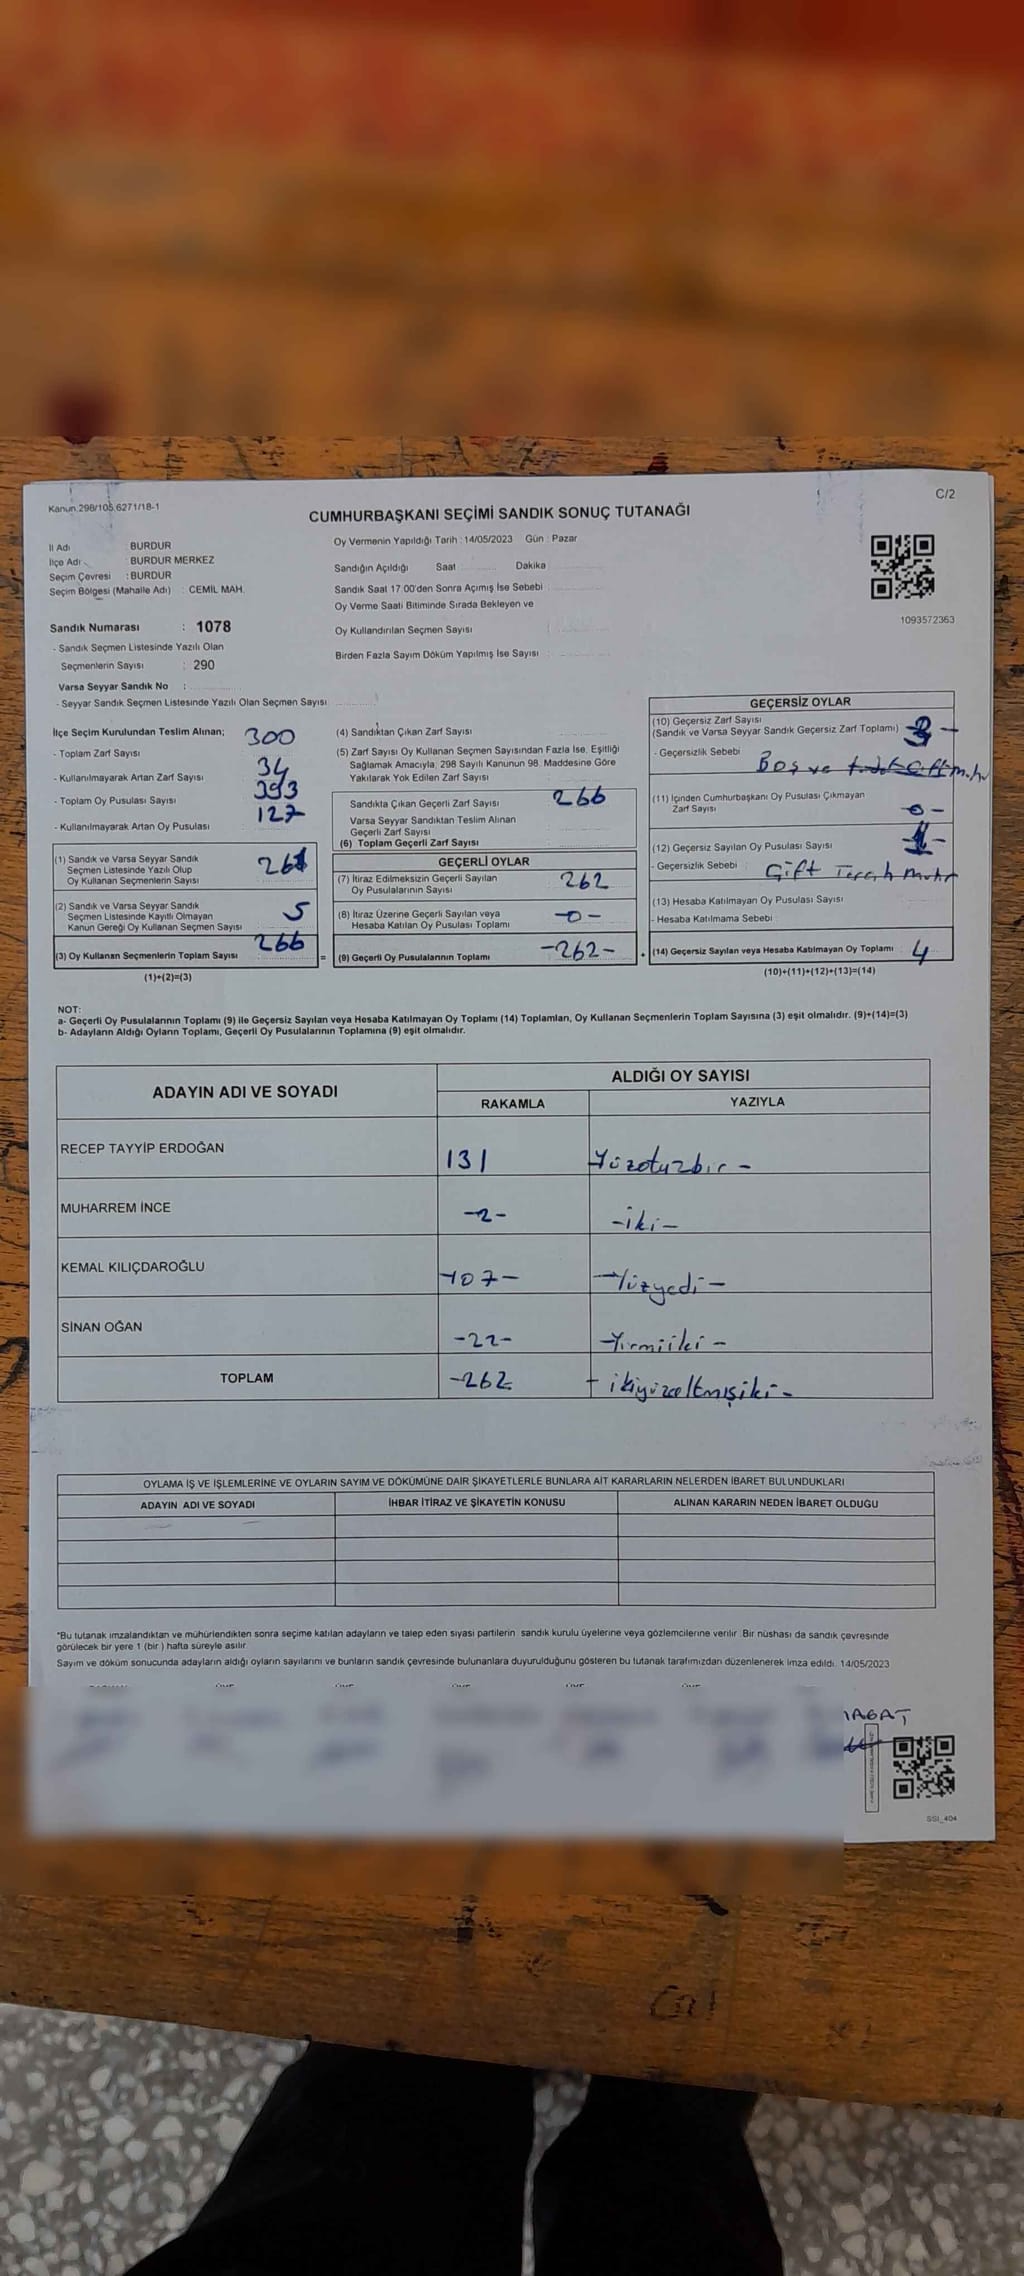 Kanun.298/105,6271/18-1
C/2
CUMHURBAŞKANI SEÇİMİ SANDIK SONUÇ TUTANAĞI
İl Adı : BURDUR
İlçe Adı : BURDUR MERKEZ
Seçim Çevresi : BURDUR
Seçim Bölgesi (Mahalle Adı) : CEMİL MAH.
Sandık Numarası : 1078
- Sandık Seçmen Listesinde Yazılı Olan
Seçmenlerin Sayısı : 290
Varsa Seyyar Sandık No :
- Seyyar Sandık Seçmen Listesinde Yazılı Olan Seçmen Sayısı
Oy Vermenin Yapıldığı Tarih : 14/05/2023 Gün : Pazar
Sandığın Açıldığı Saat Dakika
Sandık Saat 17:00'den Sonra Açımış İse Sebebi
Oy Verme Saati Bitiminde Sırada Bekleyen ve
Oy Kullandırılan Seçmen Sayısı :
Birden Fazla Sayım Döküm Yapılmış İse Sayısı :
1093572363
İlçe Seçim Kurulundan Teslim Alınan; 300
- Toplam Zarf Sayısı
- Kullanılmayarak Artan Zarf Sayısı 34
- Toplam Oy Pusulası Sayısı 393
- Kullanılmayarak Artan Oy Pusulası 127
(1) Sandık ve Varsa Seyyar Sandık
Seçmen Listesinde Yazılı Olup
Oy Kullanan Seçmenlerin Sayısı 261
(2) Sandık ve Varsa Seyyar Sandık
Seçmen Listesinde Kayıtlı Olmayan
Kanun Gereği Oy Kullanan Seçmen Sayısı 5
(3) Oy Kullanan Seçmenlerin Toplam Sayısı 266
(1)+(2)=(3)
(4) Sandıktan Çıkan Zarf Sayısı
(5) Zarf Sayısı Oy Kullanan Seçmen Sayısından Fazla İse, Eşitliği
Sağlamak Amacıyla, 298 Sayılı Kanunun 98. Maddesine Göre
Yakılarak Yok Edilen Zarf Sayısı
Sandıkta Çıkan Geçerli Zarf Sayısı 266
Varsa Seyyar Sandıktan Teslim Alınan
Geçerli Zarf Sayısı
(6) Toplam Geçerli Zarf Sayısı
GEÇERLİ OYLAR
(7) İtiraz Edilmeksizin Geçerli Sayılan
Oy Pusulalarının Sayısı 262
(8) İtiraz Üzerine Geçerli Sayılan veya
Hesaba Katılan Oy Pusulası Toplamı -0-
= (9) Geçerli Oy Pusulalarının Toplamı -262-
GEÇERSİZ OYLAR
(10) Geçersiz Zarf Sayısı
(Sandık ve Varsa Seyyar Sandık Geçersiz Zarf Toplamı) 3-
- Geçersizlik Sebebi
Boş ve
(11) İçinden Cumhurbaşkanı Oy Pusulası Çıkmayan
Zarf Sayısı -0-
(12) Geçersiz Sayılan Oy Pusulası Sayısı -1-
- Geçersizlik Sebebi : Çift Tercih Mühr
(13) Hesaba Katılmayan Oy Pusulası Sayısı
- Hesaba Katılmama Sebebi
(14) Geçersiz Sayılan veya Hesaba Katılmayan Oy Toplamı 4
(10)+(11)+(12)+(13)=(14)
NOT:
a- Geçerli Oy Pusulalarının Toplamı (9) ile Geçersiz Sayılan veya Hesaba Katılmayan Oy Toplamı (14) Toplamları, Oy Kullanan Seçmenlerin Toplam Sayısına (3) eşit olmalıdır. (9)+(14)=(3)
b- Adayların Aldığı Oyların Toplamı, Geçerli Oy Pusulalarının Toplamına (9) eşit olmalıdır.
ADAYIN ADI VE SOYADI
ALDIĞI OY SAYISI
RAKAMLA YAZIYLA
RECEP TAYYİP ERDOĞAN 131 Yüzotuzbir-
MUHARREM İNCE -2- -iki-
KEMAL KILIÇDAROĞLU -107- -Yüzyedi-
SİNAN OĞAN -22- -Yirmiiki-
TOPLAM -262 - ikiyüzaltmışiki-
OYLAMA İŞ VE İŞLEMLERİNE VE OYLARIN SAYIM VE DÖKÜMÜNE DAİR ŞİKAYETLERLE BUNLARA AİT KARARLARIN NELERDEN İBARET BULUNDUKLARI
ADAYIN ADI VE SOYADI İHBAR İTİRAZ VE ŞİKAYETİN KONUSU ALINAN KARARIN NEDEN İBARET OLDUĞU
*Bu tutanak imzalandıktan ve mühürlendikten sonra seçime katılan adayların ve talep eden siyasi partilerin sandık kurulu üyelerine veya gözlemcilerine verilir. Bir nüshası da sandık çevresinde
görülecek bir yere 1 (bir) hafta süreyle asılır.
Sayım ve döküm sonucunda adayların aldığı oyların sayılarını ve bunların sandık çevresinde bulunanlara duyurulduğunu gösteren bu tutanak tarafımızdan düzenlenerek imza edildi. 14/05/2023
SSI_404